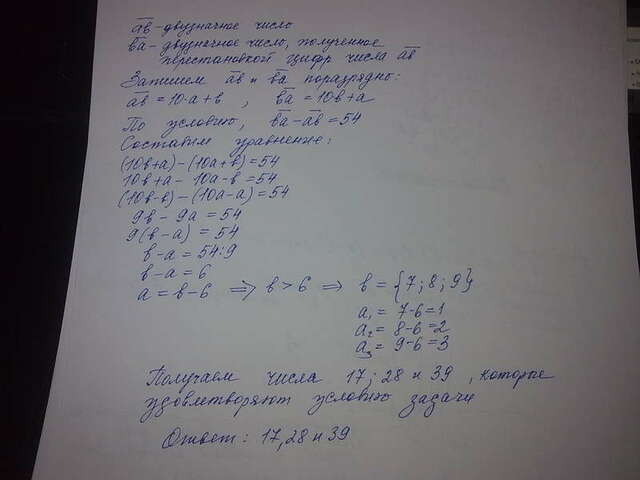 ab - двузначное число
ва - двузначное число, полученное
перестановкой цифр числа ав
Запишем ав и ва поразрядно:
ав = 10·а+в , ва = 10в+а
По условию, ва - ав = 54
Составим уравнение:
(10в+а) - (10а+в) = 54
10в+а - 10а-в = 54
(10в-в) - (10а-а) = 54
9в - 9а = 54
9(в-а) = 54
в-а = 54:9
в-а = 6
а = в-6 ⇒ в > 6 ⇒ в = {7; 8; 9}
а₁ = 7-6=1
а₂ = 8-6=2
а₃ = 9-6=3
Получаем числа 17; 28 и 39 , которые
удовлетворяют условию задачи
Ответ: 17, 28 и 39